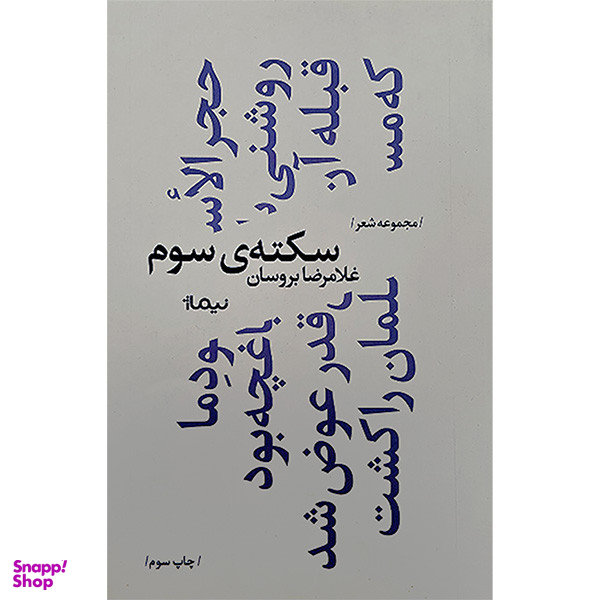 حجر الأسودِ ما
روشنیِ باغچه بود
قبله آن قدر عوض شد
که مسلمان را کشت
/مجموعه شعر/
سکته‌ی سوم
غلامرضا بروسان
نیماژ
/چاپ سوم/
Snapp!
Shop